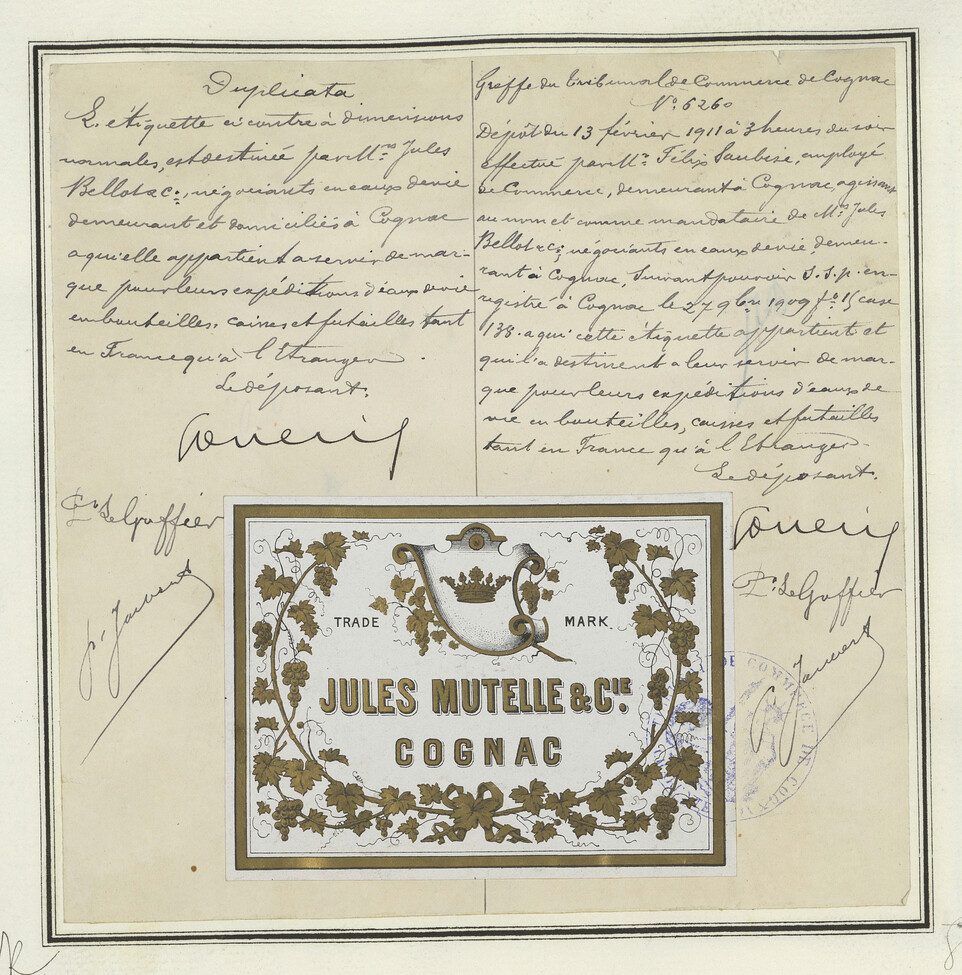 Duplicata
L'étiquette ci contre à dimensions
normales, est destinée par Mrs Jules
Bellot & Cie, négociants en eaux de vie
demeurant et domiciliés à Cognac
a qui elle appartient a servir de mar-
que pour leurs expéditions d'eaux de vie
en bouteilles, caisses et futailles tant
en France qu'à l'Etranger.
Le déposant.
Le Greffier
Greffe du Tribunal de Commerce de Cognac
N° 6260
Dépôt du 13 février 1911 à 3 heures du soir
effectué par Mr Félix Saubise, employé
de Commerce, demeurant à Cognac, agissant
au nom et comme mandataire de Mrs Jules
Bellot & Cie, négociants en eaux de vie, demeu-
rant à Cognac, Suivant pouvoir S.S.p. en-
registré à Cognac le 27 9bre 1909 fo 15 case
138. a qui cette étiquette appartient et
qui l'a destinent a leur servir de mar-
que pour leurs expéditions d'eaux de
vie en bouteilles, caisses et futailles
tant en France qu'à l'Etranger.
Le déposant.
Le Greffier
TRADE MARK
JULES MUTELLE & CIE.
COGNAC
DE COMMERCE DE COGNAC